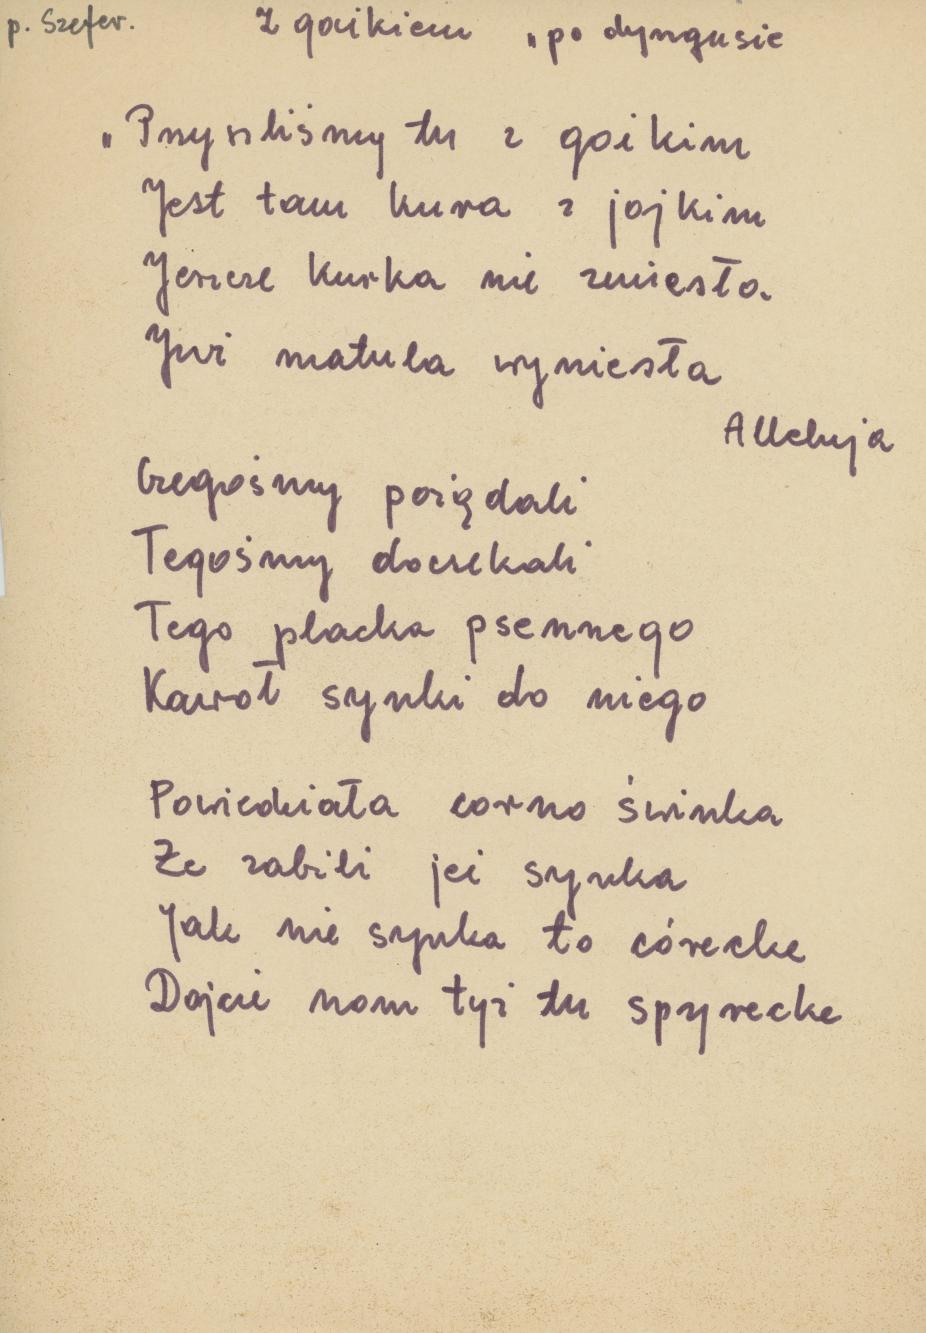 p. Szefer.
Z gaikiem „po dyngusie
„Przyszliśmy tu z goikim
Jest tam kura z jojkim
Jeszcze kurka nie zniesła
Już matula wyniesła
Alleluja
Czegośmy pożądali
Tegośmy doczekali
Tego placka psennego
Kawoł synki do niego
Powiedziała corno świnka
Ze zabili jei synka
Jak nie synka to córecke
Dojcie nom tyż tu spyrecke